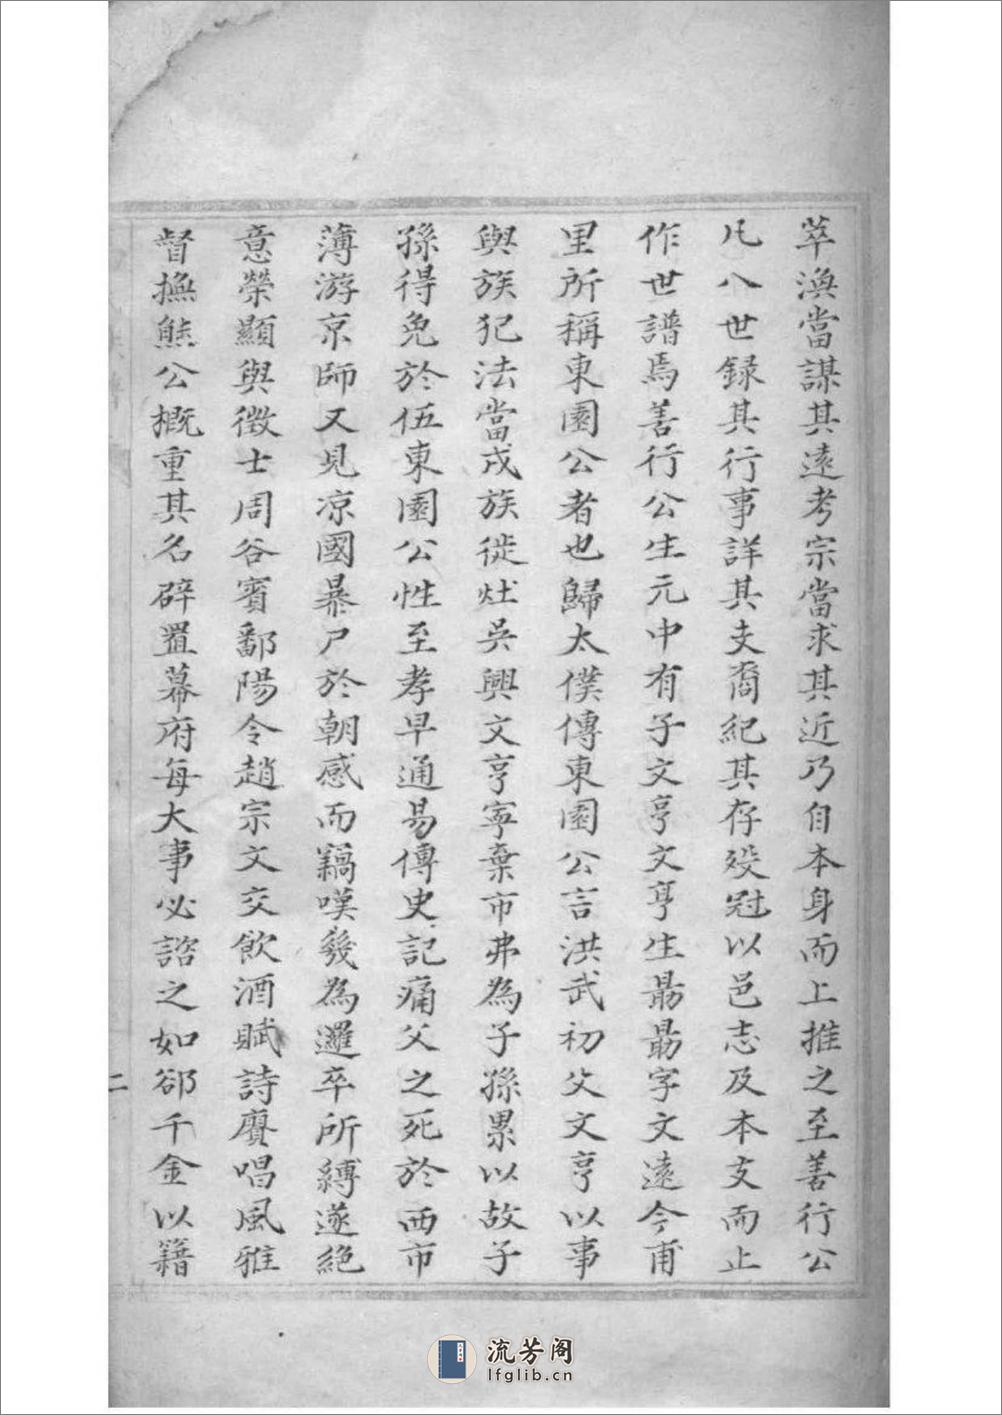 萃渙當謀其遠考宗當求其近乃自本身而上推之至善行公
凡八世録其行事詳其支裔紀其存殁冠以邑志及本支而止
作世譜焉善行公生元中有子文亨文亨生勗勗字文遠今甫
里所稱東園公者也歸太僕傳東園公言洪武初父文亨以事
與族犯法當戍族徙灶吳興文亨寧棄市弗為子孫累以故子
孫得免於伍東園公性至孝早通易傳史記痛父之死於西市
薄游京師又見凉國暴尸於朝感而竊嘆幾為邏卒所縛遂絕
意榮顯與徵士周谷賓鄱陽令趙宗文交飲酒賦詩賡唱風雅
督撫熊公概重其名辟置幕府每大事必諮之如郤千金以籍
二
流芳阁
lfglib.cn